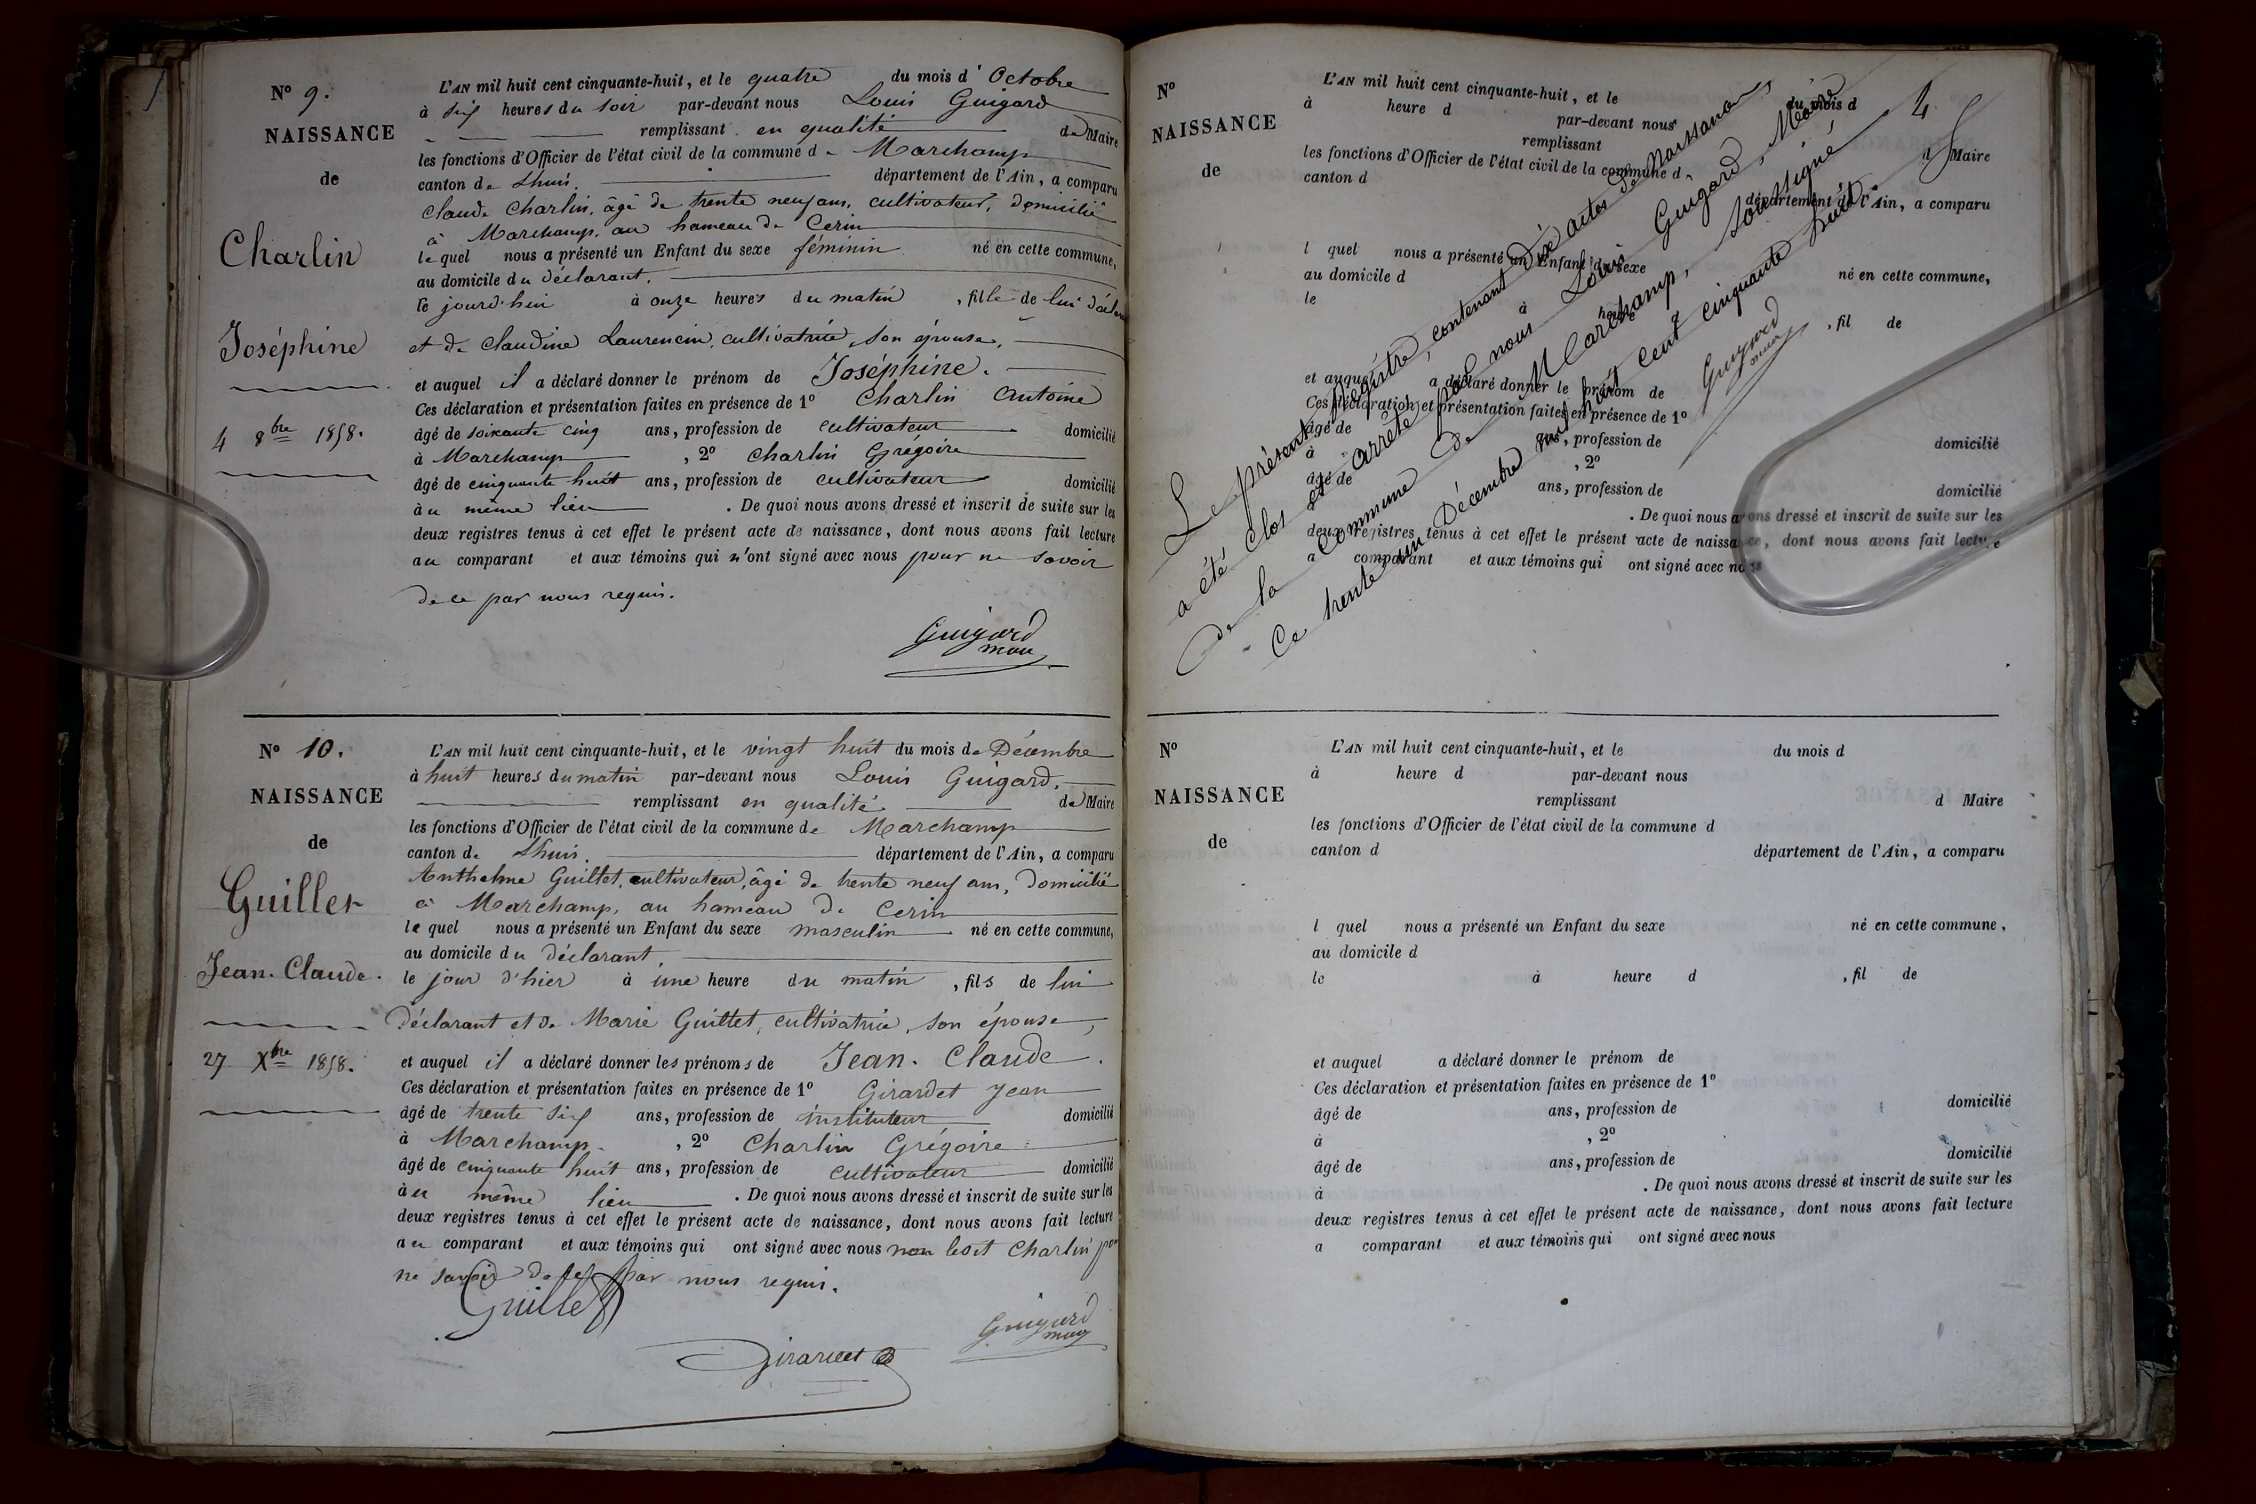 N° 9.
NAISSANCE
de
Charlin
Joséphine
4 8bre 1858.
L'AN mil huit cent cinquante-huit, et le quatre du mois d'Octobre
à six heures du soir par-devant nous Louis Guigard
remplissant en qualité de Maire
les fonctions d'Officier de l'état civil de la commune de Marchamp
canton de Lhuis. département de l'Ain, a comparu
Claude Charlin, âgé de trente neuf ans, cultivateur, domicilié
à Marchamp, au hameau de Cerin
lequel nous a présenté un Enfant du sexe féminin né en cette commune,
au domicile du déclarant.
le jourd'hui à onze heures du matin, fille de lui
et de Claudine Laurencin, cultivatrice, son épouse,
et auquel il a déclaré donner le prénom de Joséphine.
Ces déclaration et présentation faites en présence de 1° Charlin Antoine
âgé de soixante cinq ans, profession de cultivateur domicilié
à Marchamp, 2° Charlin Grégoire
âgé de cinquante huit ans, profession de cultivateur domicilié
au même lieu. De quoi nous avons dressé et inscrit de suite sur les
deux registres tenus à cet effet le présent acte de naissance, dont nous avons fait lecture
au comparant et aux témoins qui n'ont signé avec nous pour ne savoir
de ce par nous requis.
Guigard
maire
N° 10.
NAISSANCE
de
Guillet
Jean-Claude.
27 Xbre 1858.
L'AN mil huit cent cinquante-huit, et le vingt huit du mois de Décembre
à huit heures du matin par-devant nous Louis Guigard,
remplissant en qualité de Maire
les fonctions d'Officier de l'état civil de la commune de Marchamp
canton de Lhuis. département de l'Ain, a comparu
Anthelme Guillet, cultivateur, âgé de trente neuf ans, domicilié
à Marchamp, au hameau de Cerin
lequel nous a présenté un Enfant du sexe masculin né en cette commune,
au domicile du déclarant,
le jour d'hier à une heure du matin, fils de lui
déclarant et de Marie Guillet, cultivatrice, son épouse,
et auquel il a déclaré donner les prénoms de Jean-Claude.
Ces déclaration et présentation faites en présence de 1° Girardet Jean
âgé de trente six ans, profession de instituteur domicilié
à Marchamp, 2° Charlin Grégoire
âgé de cinquante huit ans, profession de cultivateur domicilié
au même lieu. De quoi nous avons dressé et inscrit de suite sur les
deux registres tenus à cet effet le présent acte de naissance, dont nous avons fait lecture
au comparant et aux témoins qui ont signé avec nous non ledit Charlin pr
ne savoir de ce par nous requis.
Guillet
Guigard
Girardet
N°
NAISSANCE
de
4
L'AN mil huit cent cinquante-huit, et le du mois d
à heure d par-devant nous
remplissant d Maire
les fonctions d'Officier de l'état civil de la commune d
canton d département de l'Ain, a comparu
l quel nous a présenté un Enfant du sexe né en cette commune,
au domicile d
le à heure d, fil de
et auquel a déclaré donner le prénom de
Ces déclaration et présentation faites en présence de 1°
âgé de ans, profession de domicilié
à, 2°
âgé de ans, profession de domicilié
. De quoi nous avons dressé et inscrit de suite sur les
deux registres tenus à cet effet le présent acte de naissance, dont nous avons fait lecture
a comparant et aux témoins qui ont signé avec nous
Le présent Registre, contenant dix actes de Naissances
a été clos et arrêté par nous Louis Guigard, Maire
de la commune de Marchamp, soussigné
Ce trente un Décembre mil huit cent cinquante huit
Guigard
maire
N°
NAISSANCE
de
L'AN mil huit cent cinquante-huit, et le du mois d
à heure d par-devant nous
remplissant d Maire
les fonctions d'Officier de l'état civil de la commune d
canton d département de l'Ain, a comparu
l quel nous a présenté un Enfant du sexe né en cette commune,
au domicile d
le à heure d, fil de
et auquel a déclaré donner le prénom de
Ces déclaration et présentation faites en présence de 1°
âgé de ans, profession de domicilié
à, 2°
âgé de ans, profession de domicilié
à. De quoi nous avons dressé et inscrit de suite sur les
deux registres tenus à cet effet le présent acte de naissance, dont nous avons fait lecture
a comparant et aux témoins qui ont signé avec nous